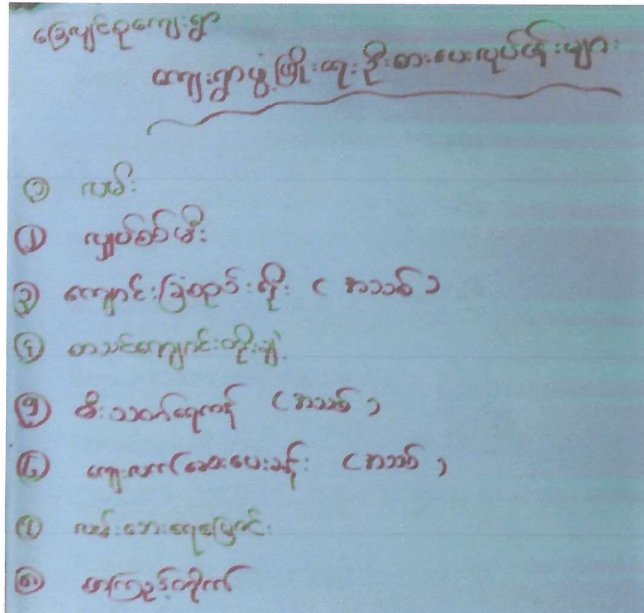 ခြေချင်စုကျေးရွာ
ကျေးရွာဖွံ့ဖြိုးရေးဦးစားပေးလုပ်ငန်းများ
၁ လမ်း
၂ လျှပ်စစ်မီး
၃ ကျောင်းခြံစည်းရိုး (အသစ်)
၄ စာသင်ကျောင်းတိုးချဲ့
၅ မီးသတ်ရေကန် (အသစ်)
၆ ကျေးလက်ဆေးပေးခန်း (အသစ်)
၇ လမ်းဘေးရေမြောင်း
၈ စာကြည့်တိုက်